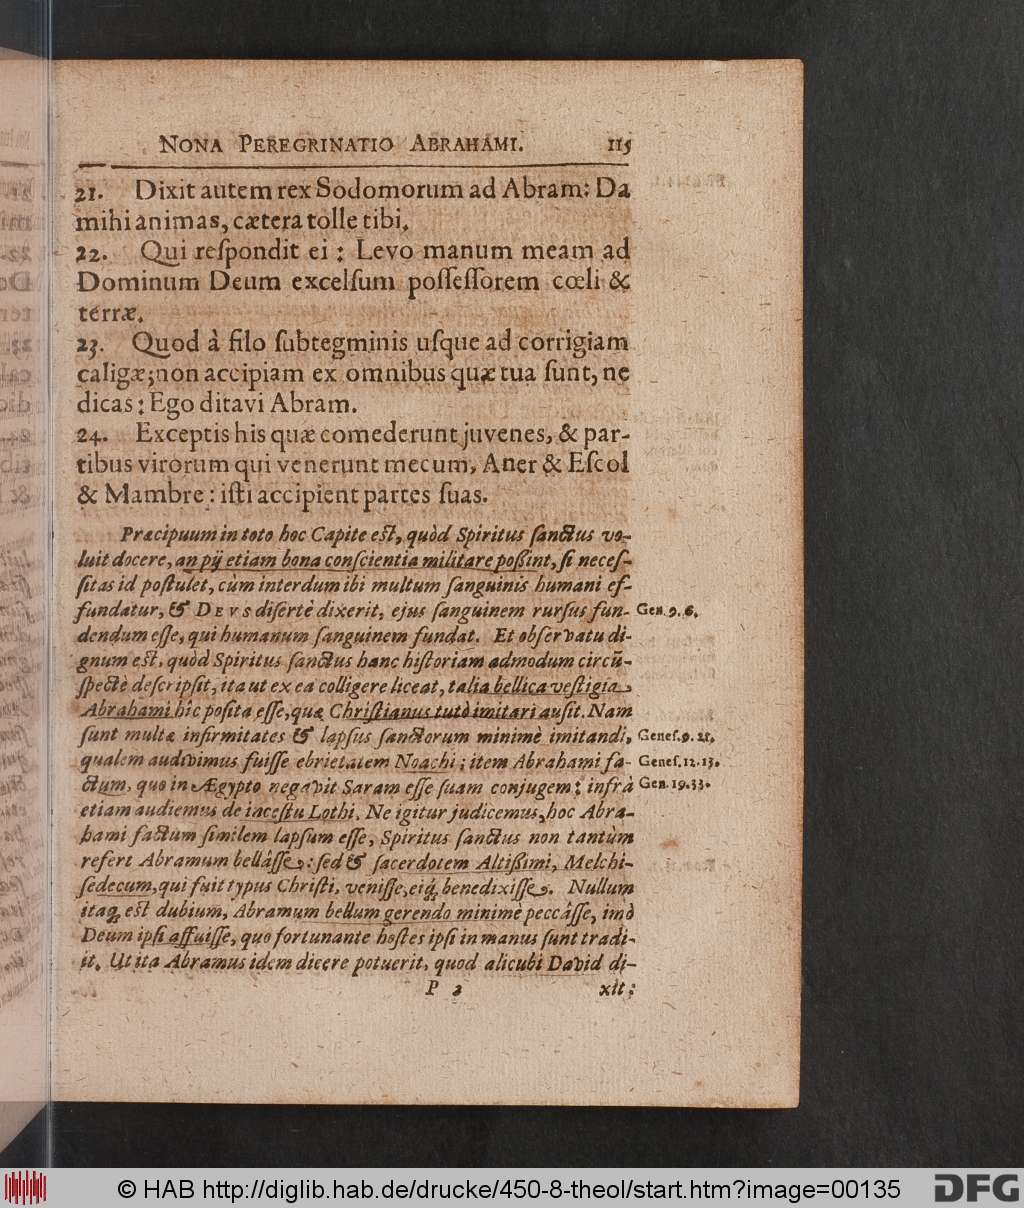 NONA PEREGRINATIO ABRAHAMI. 115
21. Dixit autem rex Sodomorum ad Abram: Da
mihi animas, cætera tolle tibi.
22. Qui reſpondit ei: Levo manum meam ad
Dominum Deum excelſum poſſeſſorem cœli &
terræ.
23. Quod à filo ſubtegminis uſque ad corrigiam
caligæ; non accipiam ex omnibus quæ tua ſunt, ne
dicas: Ego ditavi Abram.
24. Exceptis his quæ comederunt juvenes, & par-
tibus virorum qui venerunt mecum, Aner & Eſcol
& Mambre: iſti accipient partes ſuas.
Præcipuum in toto hoc Capite eſt, quòd Spiritus ſanctus vo-
luit docere, an pij etiam bona conſcientia militare poßint, ſi neceſ-
ſitas id poſtulet, cùm interdum ibi multum ſanguinis humani ef-
fundatur, & DEVS diſertè dixerit, ejus ſanguinem rurſus fun-
dendum eſſe, qui humanum ſanguinem fundat. Et obſervatu di-
gnum eſt, quòd Spiritus ſanctus hanc hiſtoriam admodum circũ-
ſpectè deſcripſit, ita ut ex ea colligere liceat, talia bellica veſtigia
Abrahami hîc poſita eſſe, quæ Chriſtianus tutò imitari auſit. Nam
ſunt multæ infirmitates & lapſus ſanctorum minimè imitandi,
qualem audivimus fuiſſe ebrietatem Noachi; item Abrahami fa-
ctum, quo in Ægypto negavit Saram eſſe ſuam conjugem: infrà
etiam audiemus de inceſtu Lothi. Ne igitur judicemus, hoc Abra-
hami factum ſimilem lapſum eſſe, Spiritus ſanctus non tantùm
refert Abramum bellâſſe: ſed & ſacerdotem Altißimi, Melchi-
ſedecum, qui fuit typus Chriſti, veniſſe, eiq́; benedixiſſe. Nullum
itaq; eſt dubium, Abramum bellum gerendo minimè peccâſſe, imò
Deum ipſi affuiſſe, quo fortunante hoſtes ipſi in manus ſunt tradi-
ti. Ut ita Abramus idem dicere potuerit, quod alicubi David di-
P 2 xit:
Gen. 9. 6.
Geneſ. 9. 21.
Geneſ. 12. 13.
Gen. 19. 33.
© HAB http://diglib.hab.de/drucke/450-8-theol/start.htm?image=00135
DFG